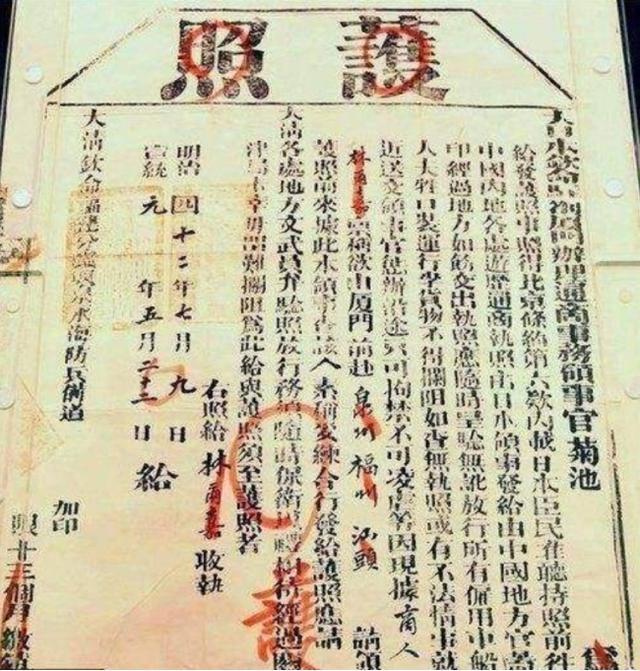 護照
大日本欽命駐劄厦門辦理通商事務領事官菊池
為
給發護照事照得北京條約第六款內載日本臣民准聽持照前往
中國內地各處遊歷通商執照由日本領事發給由中國地方官蓋
印經過地方如飭交出執照應隨時呈驗無訛放行所有僱用車船
人夫牲口裝運行李貨物不得攔阻如查無執照或有不法情事就
近送交領事官懲辦沿途只可拘禁不可凌虐等因現據商人
林爾嘉稟稱欲由厦門前赴泉州 福州 汕頭 請領
護照前來據此本領事查該人素稱妥練合行發給護照應請
大清各處地方文武員弁驗照放行務須隨時保衛 經過關
津局卡幸毋留難攔阻爲此給與護照須至護照者
右照給林爾嘉收執
明治四十二年七月九日
宣統元年五月二十二日 給
大清欽命福建分巡興泉永海防兵備道
加印
限十三個月繳銷